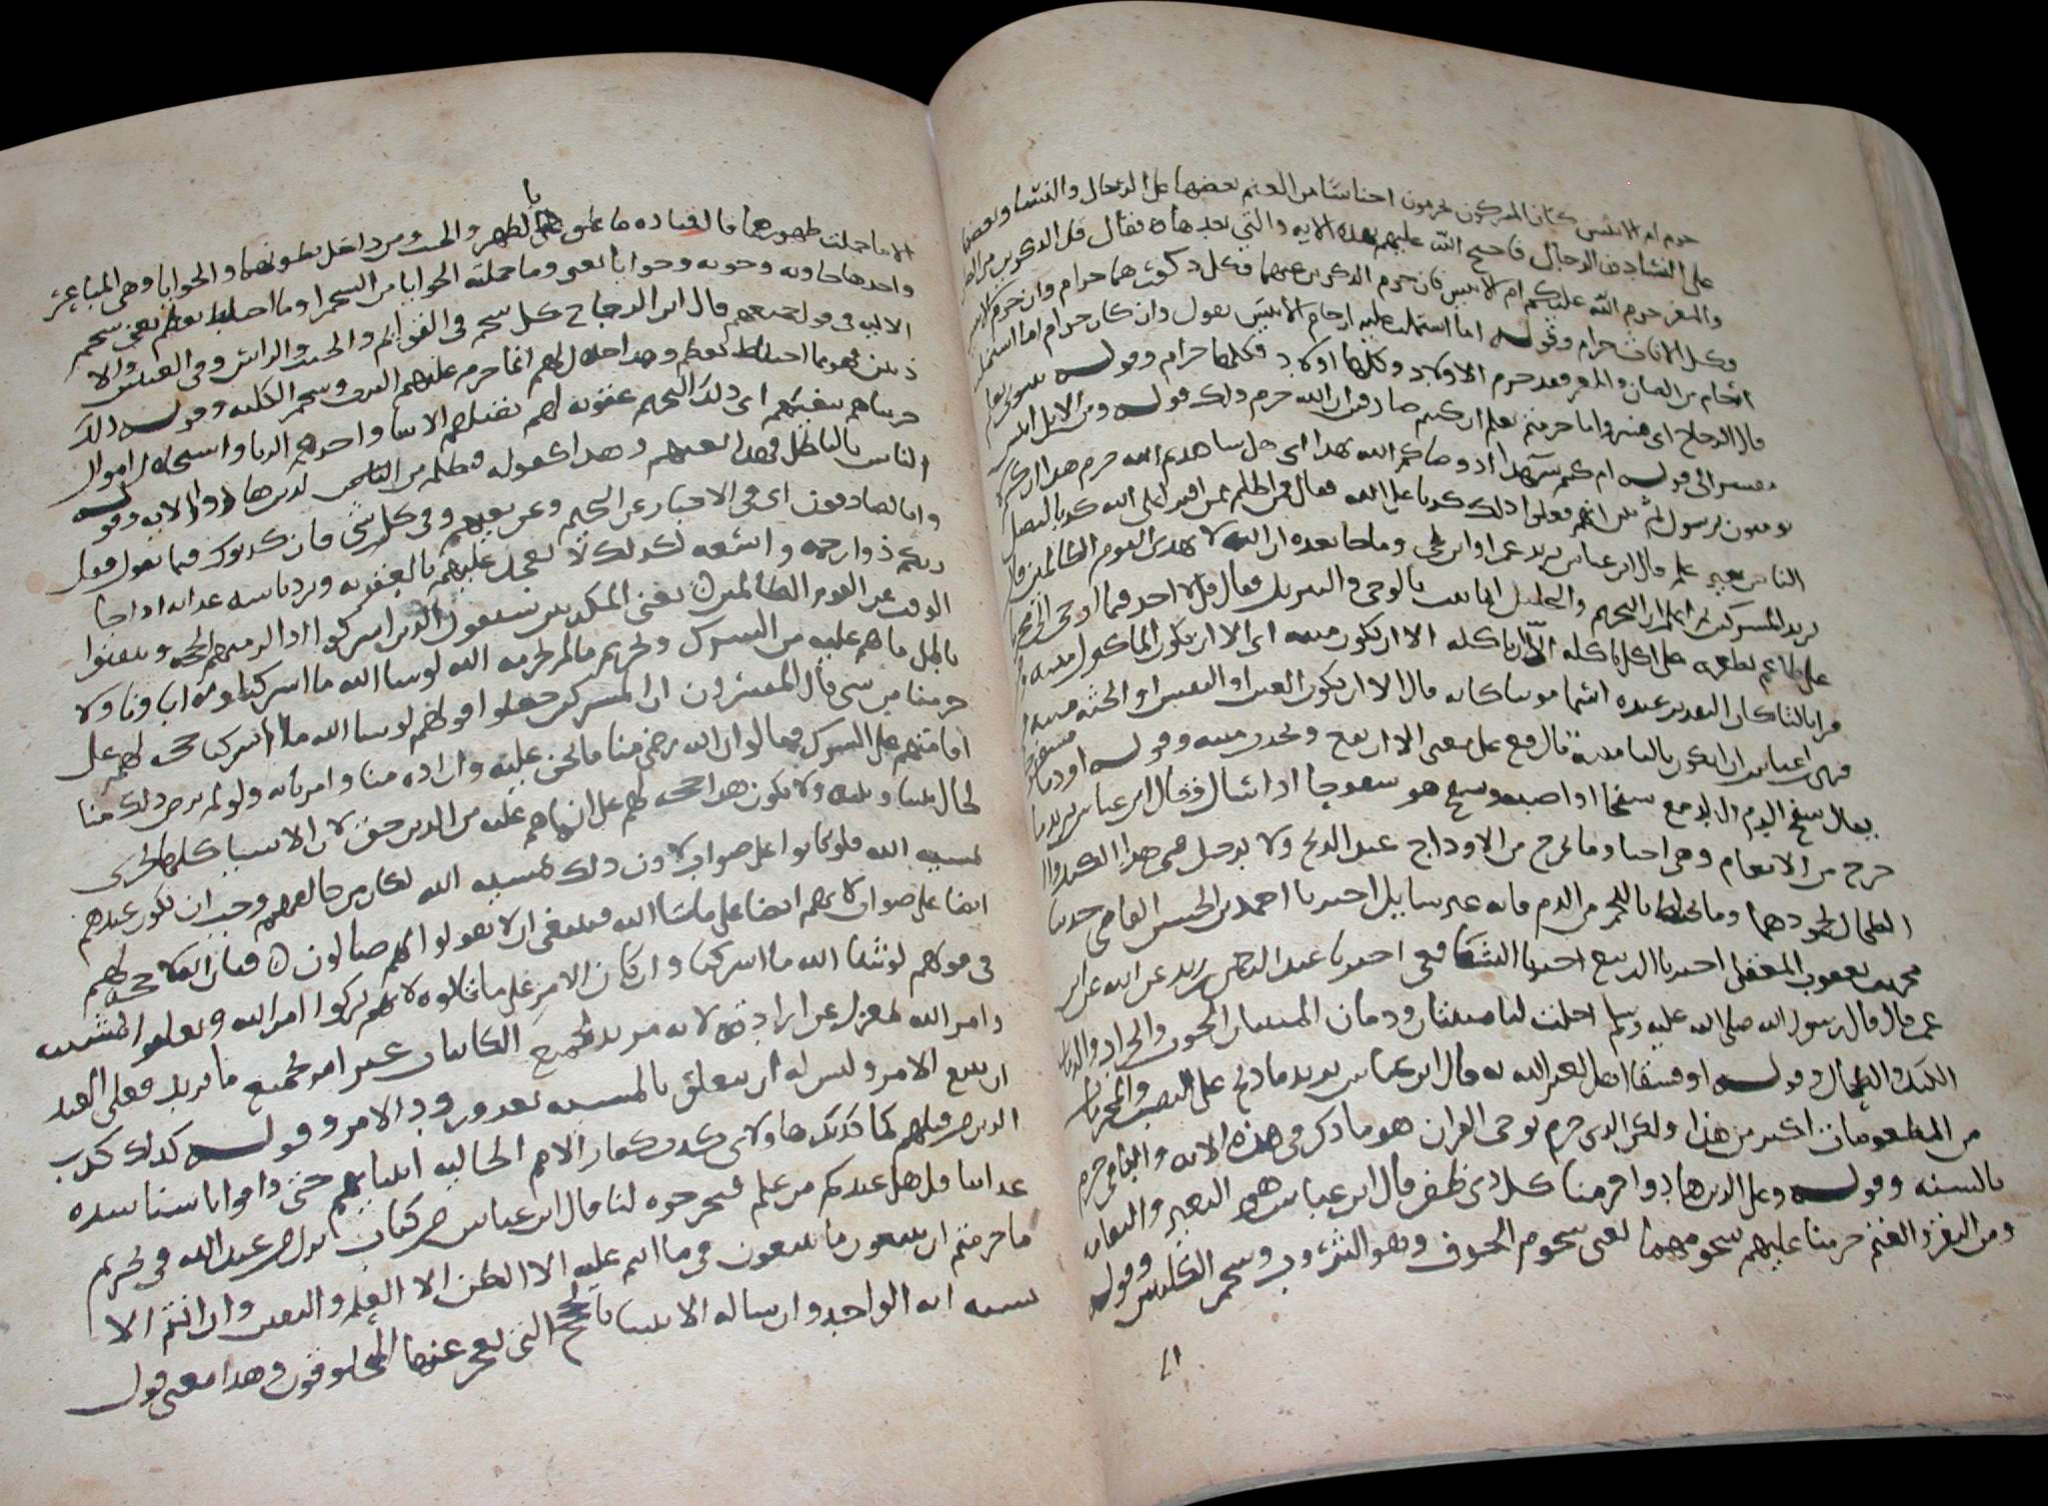 حرم ام الانثيين كان المشركون يحرمون اجناسا من النعم بعضها على الرجال والنسا وبعضها
على النسا دون الرجال فاحتج الله عليهم بهذه الايه والتي بعدها فقال قل الذكرين من الضان
والمعز حرم الله عليكم ام الانثيين فان حرم الذكرين منهما فكل ذكورهما حرام وان حرم الانثيين
وكل الاناث حرام وقوله اما اشتملت عليه ارحام الانثيين يقول وان كان حرام اما اشتملت
ارحام من الضان والمعز فقد حرم الاولاد وكلها اولاد فكلها حرام وقوله نبوني بعلم
قال الزجاج اي فسروا ما حرمتم بعلم ان كنتم صادقين ان الله حرم ذلك قوله ومن الابل اثنين
مفسر الى قوله ام كنتم شهدا اذ وصاكم الله بهذا اي هل شاهدتم الله حرم هذا ان كنتم
لا تومنون برسول ثم بين انهم فعلوا ذلك كذبا على الله فقال فمن اظلم ممن افترى على الله كذبا ليضل
الناس بغير علم قال ابن عباس يريد عمرو بن لحي وما جا بعده ان الله لا يهدي القوم الظالمين قال
يريد المشركين ثم اعلم ان التحريم والتحليل انما يثبت بالوحي والتنزيل فقال قل لا اجد فيما اوحي الي محرما
على طاعم يطعمه على اكل ياكله الا ان يكون ميته اي الا ان يكون الماكول ميته
يقال سفح الدم
خرج من الانعام وهي احيا وما يخرج من الاوداج عند الذبح ولا يدخل في هذا الكبد و
الطحال لجمودهما وما يختلط باللحم من الدم فانه غير سايل اخبرنا احمد بن الحسن القاضي حدثنا
محمد بن يعقوب المعقلي اخبرنا الربيع اخبرنا الشافعي اخبرنا عبد الرحمن بن زيد عن ابيه عن ابن
عمر قال قال رسول الله صلى الله عليه وسلم احلت لنا ميتتان ودمان الميتتان الحوت والجراد والدمان
الكبد والطحال وقوله او فسقا اهل لغير الله به قال ابن عباس يريد ما ذبح على النصب والمحرمات
من المطعومات اكثر من هذا ولكن الذي حرم بوحي القران هو ما ذكر في هذه الايه والباقي حرم
بالسنه وقوله وعلى الذين هادوا حرمنا كل ذي ظفر قال ابن عباس هو البعير والنعامه
ومن البقر والغنم حرمنا عليهم شحومهما يعني شحوم الجوف وهو الثروب وشحم الكليتين وقوله
الا ما حملت ظهورهما قال قتاده ما علق بالظهر والجنب من داخل بطونهما والحوايا وهي المباعر
واحدها حاويه وحويه وحوايا يعني وما حملته الحوايا من الشحم او ما اختلط بعظم يعني شحم
الاليه في قول جميعهم قال ابن الزجاج كل شحم في القوائم والجنب والراس وفي العينين والا
ذنين فهو مما اختلط بعظم وهذا حلال لهم انما حرم عليهم الثرب وشحم الكليه وقوله ذلك
جزيناهم ببغيهم اي ذلك التحريم عقوبه لهم بقتلهم الانبيا واخذهم الربا واستحلال اموال
الناس بالباطل فهذا بغيهم وهذا كقوله فبظلم من الذين هادوا الايه وقوله
وانا لصادقون اي في الاخبار عن التحريم وعن بغيهم وفي كل شي فان كذبوك فيما تقول فقل
ربكم ذو رحمه واسعه لذلك لا يعجل عليكم بالعقوبه ولا يرد باسه عذابه اذا جا
الوقت عن القوم الظالمين يعني المكذبين سيقول الذين اشركوا اذا لزمتهم الحجه وتيقنوا
باطل ما هم عليه من الشرك وتحريم ما لم يحرمه الله لو شا الله ما اشركنا ولا اباونا ولا
حرمنا من شي قال المفسرون ان المشركين جعلوا قولهم لو شا الله ما اشركنا حجه لهم على
اقامتهم على الشرك فقالوا ان الله رضي منا ما نحن عليه واراده منا وامرنا به ولو لم يرض ذلك منا
لحال بيننا وبينه ولا يكون هذا حجه لهم على ان ما هم عليه من الدين حق لان الاشيا كلها تجري
بمشيه الله فلو كانوا على صواب لان ذلك بمشيه الله لكان من خالفهم وجب ان يكون عندهم
ايضا على صواب لانهم ايضا على ما شا الله فينبغي ان لا يقولوا انهم ضالون فبان انه لا حجه لهم
في قولهم لو شا الله ما اشركنا وان كان الامر على ما قالوه لانهم تركوا امر الله وتعلقوا بالمشيه
وامر الله بمعزل عن ارادته لانه مريد لجميع الكاينات غير امر بجميع ما يريد فعلى العبد
ان يتبع الامر وليس له ان يتعلق بالمشيه بعد ورود الامر وقوله كذلك كذب
الذين من قبلهم كما كذبك هاولاي كذب كفار الامم الخاليه انبياهم حتى ذاقوا باسنا شده
عذابنا قل هل عندكم من علم فتخرجوه لنا قال ابن عباس من كتاب نزل من عند الله في تحريم
ما حرمتم ان تتبعون ما تتبعون في ما انتم عليه الا الظن لا العلم واليقين وان انتم الا
بين انه الواحد وارساله الانبيا بالحجج التي يعجز عنها المخلوقون وهذا معنى قول